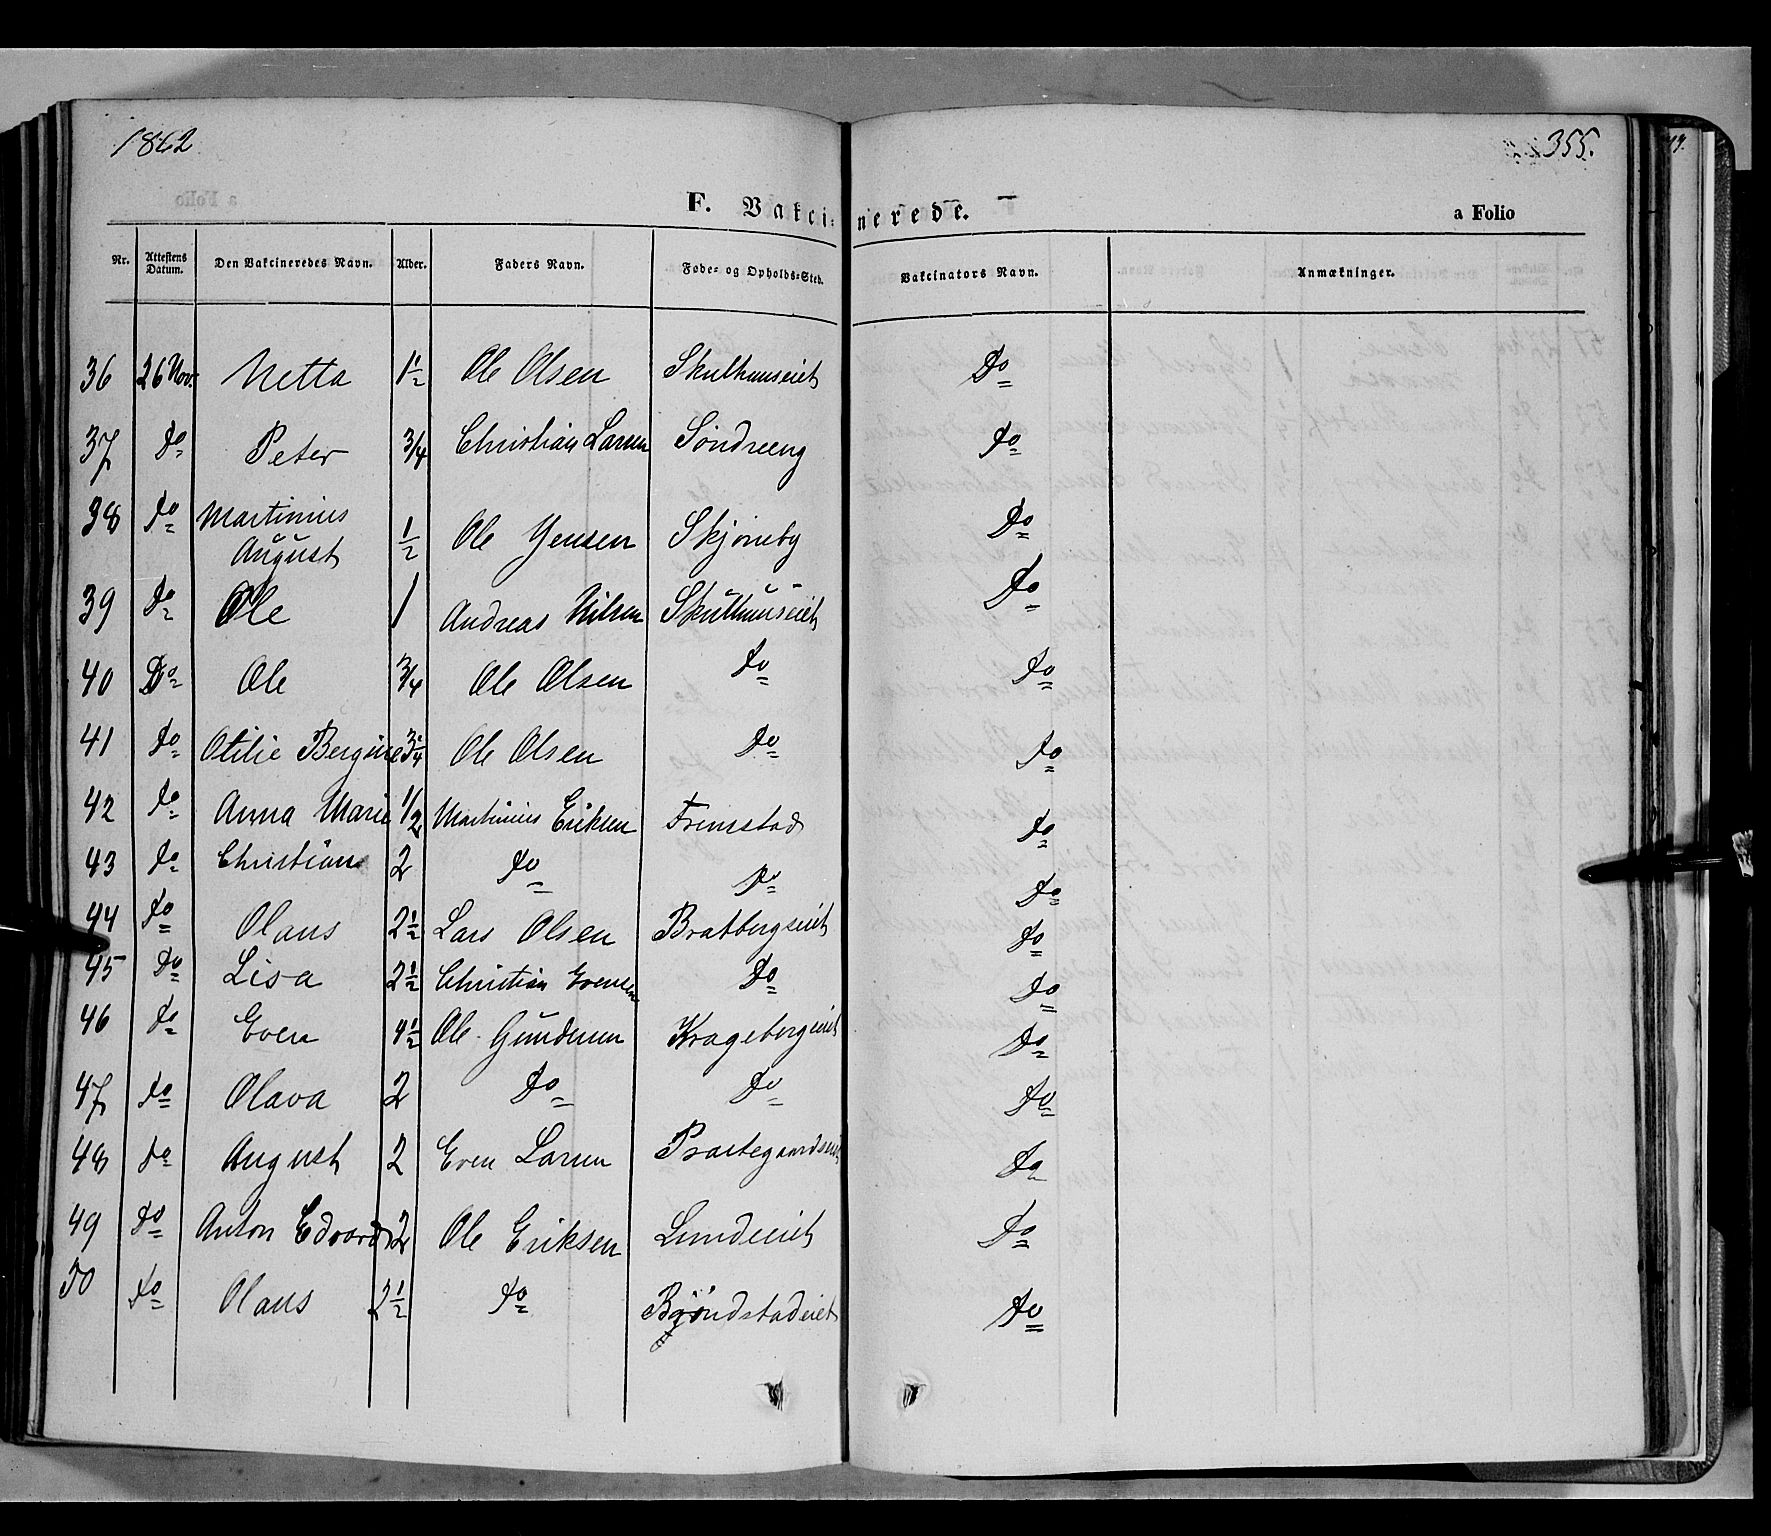 1862
355.
F. Vakcinerede.
a Folio
Nr. Attestens Datum. Den Vakcineredes Navn. Alder. Faders Navn. Føde- og Opholds-Sted. Vakcinators Navn. Anmærkninger.
36 26 Nov. Netta 1½ Ole Olsen Skulhuuseiet Do
37 do Peter 3/4 Christian Larsen Søndreeng do
38 do Martinius August ½ Ole Jensen Skjøneby Do
39 do Ole 1 Andreas Nilsen Skulhuuseiet Do
40 Do Ole 3/4 Ole Olsen do do
41 do Otilie Bergine 3/4 Ole Olsen do do
42 do Anna Marie 1/2 Martinius Eriksen Fremstad do
43 do Christian 2 do do do
44 do Olaus 2½ Lars Olsen Bratbergseiet do
45 do Lisa 2½ Christian Evensen do do
46 do Even 4½ Ole Gundersen Kragebergseiet do
47 do Olava 2 do do do
48 do August 2 Even Larsen Præstegaardseiet do
49 do Anton Edvard 2 Ole Eriksen Lundeeiet do
50 do Olaus 2½ do Bjøndstadeiet do